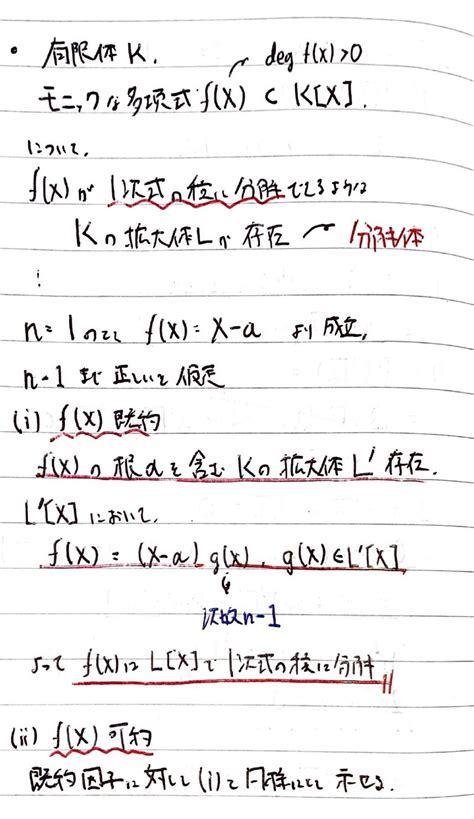 ・ 有限体 K. deg f(x)>0
モニックな多項式 f(X) ⊂ K[X].
について.
f(X) が 1次式の積に分解できるような
Kの拡大体 L が存在 分解体
⋮
n=1のとき f(X)=X-a より成立.
n-1 まで正しいと仮定
(i) f(X) 既約
f(X) の根 α を含む Kの拡大体 L' 存在.
L'[X] において.
f(X) = (X-α) g(X), g(X)∈L'[X]
次数n-1
よって f(X)は L[X]で 1次式の積に分解
(ii) f(X) 可約
既約因子に対して (i)と同様にして 示せる.